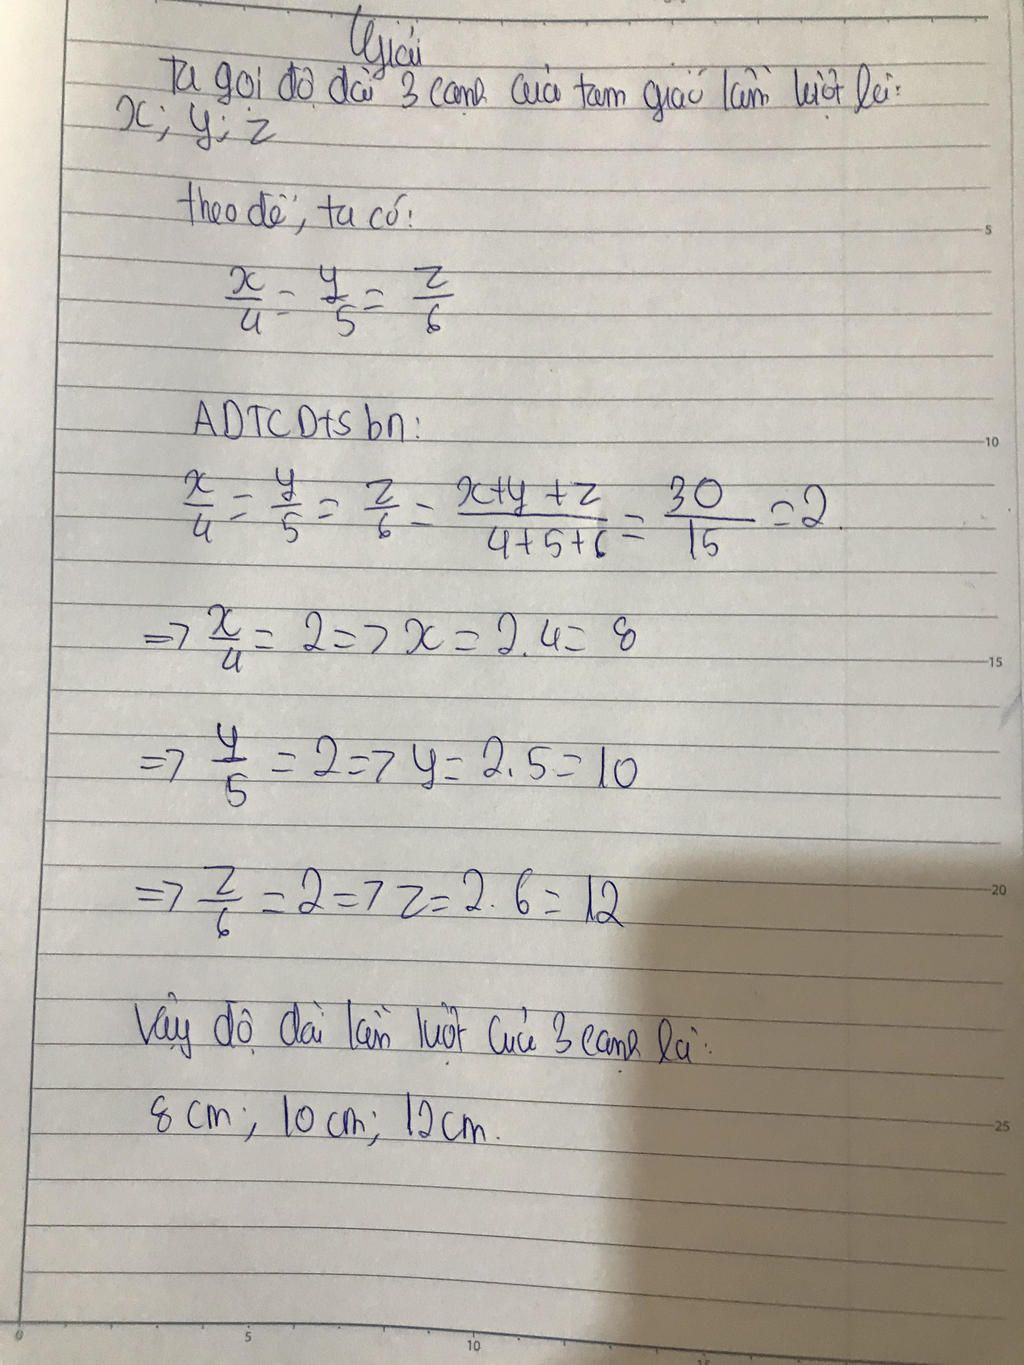 Giải
Ta gọi độ dài 3 cạnh của tam giác lần lượt là:
x; y; z
theo đề, ta có:
x/4 = y/5 = z/6
ADTCDtS bn:
x/4 = y/5 = z/6 = x+y+z/4+5+6 = 30/15 = 2.
=> x/4 = 2 => x = 2.4 = 8
=> y/5 = 2 => y = 2.5 = 10
=> z/6 = 2 => z = 2.6 = 12
Vậy độ dài lần lượt của 3 cạnh là:
8 cm; 10 cm; 12 cm.
5
10
15
20
25
0
5
10
15